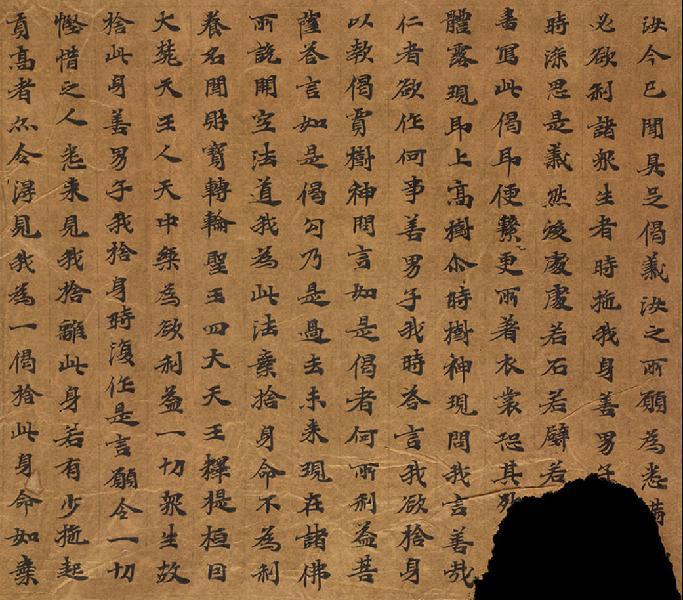 汝今已聞具足偈義汝之所願為悉滿
必欲利諸眾生者時施我身善男子
時深思是義然後處處若石若壁若
書寫此偈即便繫更所著衣裳恐其死
體露現即上高樹尒時樹神現問我言善哉
仁者欲作何事善男子我時答言我欲捨身
以報偈賈樹神問言如是偈者何所利益菩
薩答言如是偈句乃是過去未來現在諸佛
所說開空法道我為此法棄捨身命不為利
養名聞財寶轉輪聖王四大天王釋提桓因
大梵天王人天中樂為欲利益一切眾生故
捨此身善男子我捨身時復作是言願令一切
慳惜之人悉來見我捨離此身若有少施起
貢高者亦令得見我為一偈捨此身命如棄